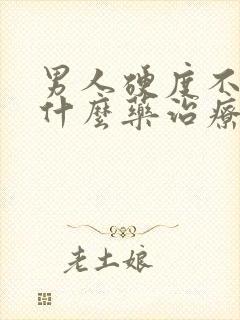 男人硬度不
什麼藥治療
老土娘